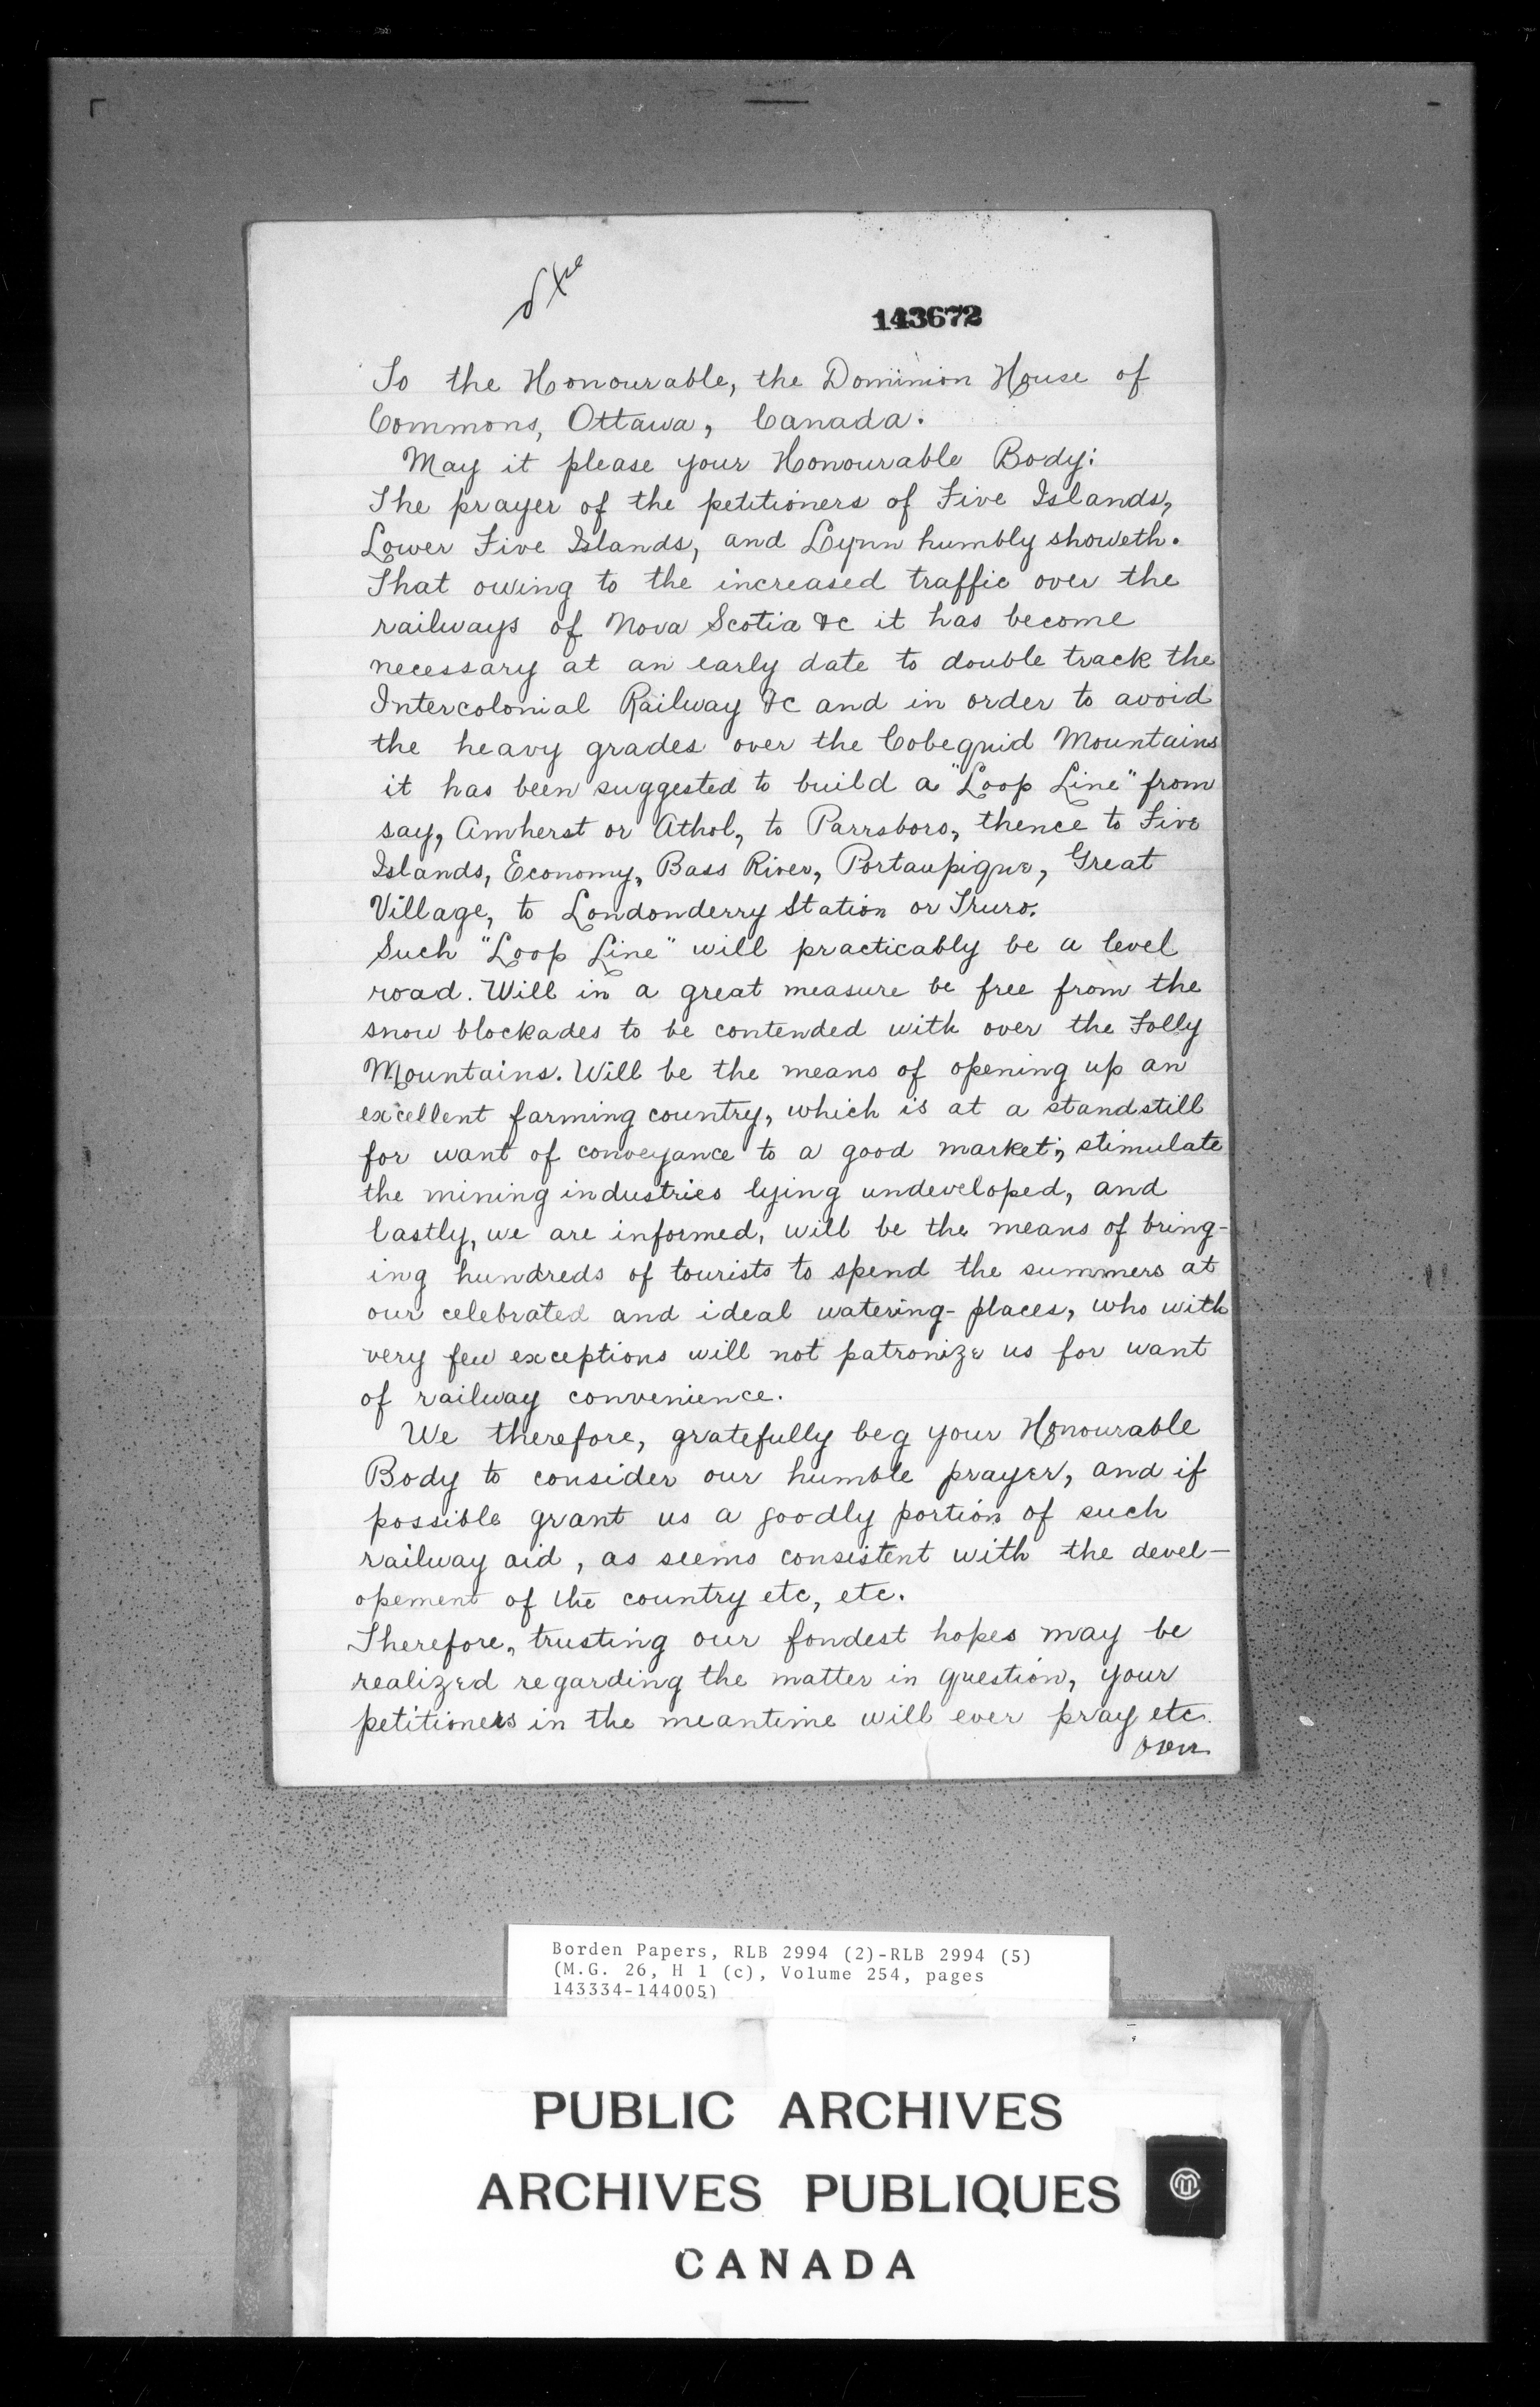 143672
To the Honourable, the Dominion House of
Commons, Ottawa, Canada.
May it please your Honourable Body:
The prayer of the petitioners of Five Islands,
Lower Five Islands, and Lynn humbly showeth.
That owing to the increased traffic over the
railways of Nova Scotia &c it has become
necessary at an early date to double track the
Intercolonial Railway &c and in order to avoid
the heavy grades over the Cobequid Mountains
it has been suggested to build a "Loop Line" from
say, Amherst or Athol, to Parrsboro, thence to Five
Islands, Economy, Bass River, Portaupique, Great
Village, to Londonderry Station or Truro.
Such "Loop Line" will practicably be a level
road. Will in a great measure be free from the
snow blockades to be contended with over the Folly
Mountains. Will be the means of opening up an
excellent farming country, which is at a standstill
for want of conveyance to a good market; stimulate
the mining industries lying undeveloped, and
lastly, we are informed, will be the means of bring-
ing hundreds of tourists to spend the summers at
our celebrated and ideal watering-places, who with
very few exceptions will not patronize us for want
of railway convenience.
We therefore, gratefully beg your Honourable
Body to consider our humble prayer, and if
possible grant us a goodly portion of such
railway aid, as seems consistent with the devel-
opement of the country etc, etc.
Therefore, trusting our fondest hopes may be
realized regarding the matter in question, your
petitioners in the meantime will ever pray etc.
over
Borden Papers, RLB 2994 (2)-RLB 2994 (5)
(M.G. 26, H 1 (c), Volume 254, pages
143334-144005)
PUBLIC ARCHIVES
ARCHIVES PUBLIQUES
CANADA